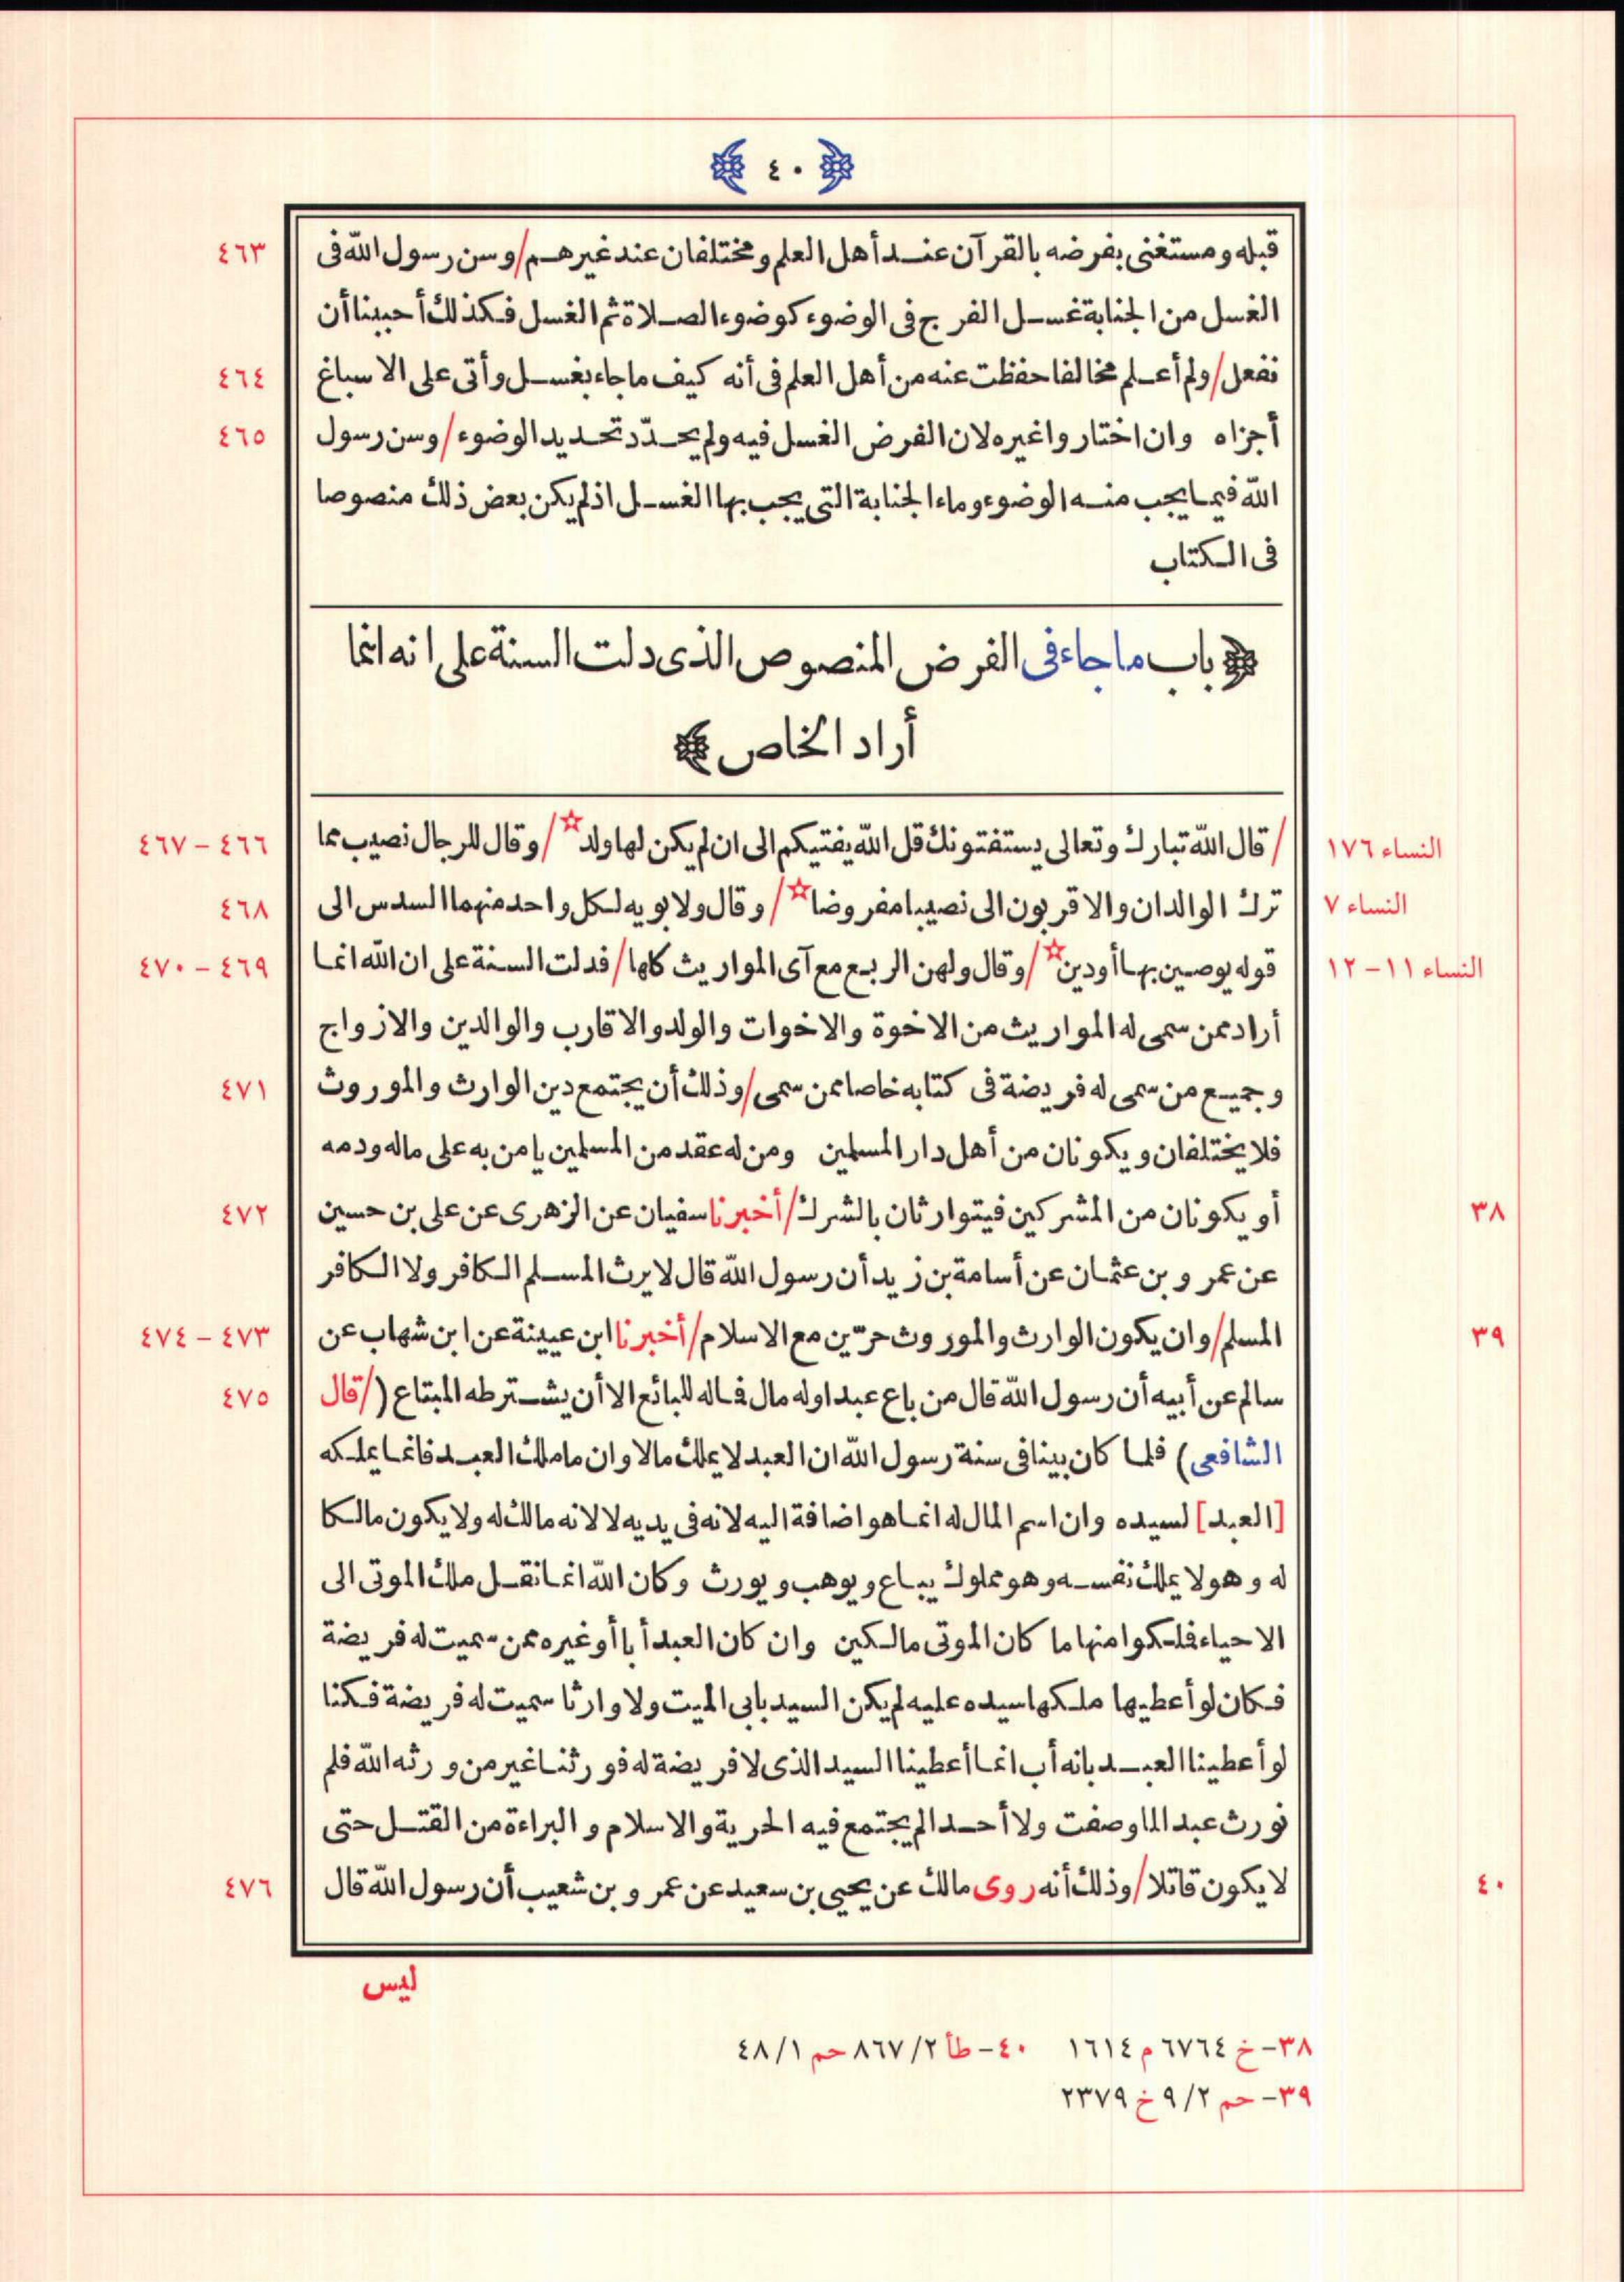 ٤٠
قبله ومستغنى بفرضه بالقرآن عند أهل العلم ومختلفان عند غيرهم/وسن رسول الله فى ٤٦٣
الغسل من الجنابة غسل الفرج فى الوضوء كوضوء الصلاة ثم الغسل فكذلك أحببنا أن
نفعل/ولم أعلم مخالفا حفظت عنه من أهل العلم فى أنه كيف ما جاء بغسل وأتى على الاسباغ ٤٦٤
أجزاه وان اختار واغيره لان الفرض الغسل فيه ولم يحدّد تحديد الوضوء/وسن رسول ٤٦٥
الله فيما يجب منه الوضوء وما الجنابة التى يجب بها الغسل اذ لم يكن بعض ذلك منصوصا
فى الكتاب
باب ما جاء فى الفرض المنصوص الذى دلت السنة على انه انما
أراد الخاص
النساء ١٧٦ /قال الله تبارك وتعالى يستفتونك قل الله يفتيكم الى ان لم يكن لها ولد☆/وقال للرجال نصيب مما ٤٦٦ – ٤٦٧
النساء ٧ ترك الوالدان والاقربون الى نصيبا مفروضا☆/وقال ولابويه لكل واحد منهما السدس الى ٤٦٨
النساء ١١ – ١٢ قوله يوصين بها أو دين☆/وقال ولهن الربع مع آى المواريث كلها/فدلت السنة على ان الله انما ٤٦٩ – ٤٧٠
أراد ممن سمى له المواريث من الاخوة والاخوات والولد والاقارب والوالدين والازواج
وجميع من سمى له فريضة فى كتابه خاصا ممن سمى/وذلك أن يجتمع دين الوارث والموروث ٤٧١
فلا يختلفان ويكونان من أهل دار المسلمين ومن له عقد من المسلمين يامن به على ماله ودمه
٣٨ أو يكونان من المشركين فيتوارثان بالشرك/أخبرنا سفيان عن الزهرى عن على بن حسين ٤٧٢
عن عمرو بن عثمان عن أسامة بن زيد أن رسول الله قال لا يرث المسلم الكافر ولا الكافر
٣٩ المسلم/وان يكون الوارث والموروث حرّين مع الاسلام/أخبرنا ابن عيينة عن ابن شهاب عن ٤٧٣ – ٤٧٤
سالم عن أبيه أن رسول الله قال من باع عبدا وله مال فماله للبائع الا أن يشترطه المبتاع (/قال ٤٧٥
الشافعى) فلما كان بينا فى سنة رسول الله ان العبد لا يملك مالا وان ما ملك العبد فانما يملكه
[العبد] لسيده وان اسم المال له انما هو اضافة اليه لانه فى يديه لا لانه مالك له ولا يكون مالكا
له وهو لا يملك نفسه وهو مملوك يباع ويوهب ويورث وكان الله انما نقل ملك الموتى الى
الاحياء فملكوا منها ما كان الموتى مالكين وان كان العبد أبا أو غيره ممن سميت له فريضة
فكان لو أعطيها ملكها سيده عليه لم يكن السيد بابى الميت ولا وارثا سميت له فريضة فكنا
لو أعطينا العبد بانه أب انما أعطينا السيد الذى لا فريضة له فورثنا غير من ورثه الله فلم
نورث عبدا لما وصفت ولا أحدا لم يجتمع فيه الحرية والاسلام والبراءة من القتل حتى
٤٠ لا يكون قاتلا/وذلك أنه روى مالك عن يحيى بن سعيد عن عمرو بن شعيب أن رسول الله قال ٤٧٦
ليس
٣٨– خ ٦٧٦٤ م ١٦١٤ ٤٠– طأ ٨٦٧/٢ حم ٤٨/١
٣٩– حم ٩/٢ خ ٢٣٧٩